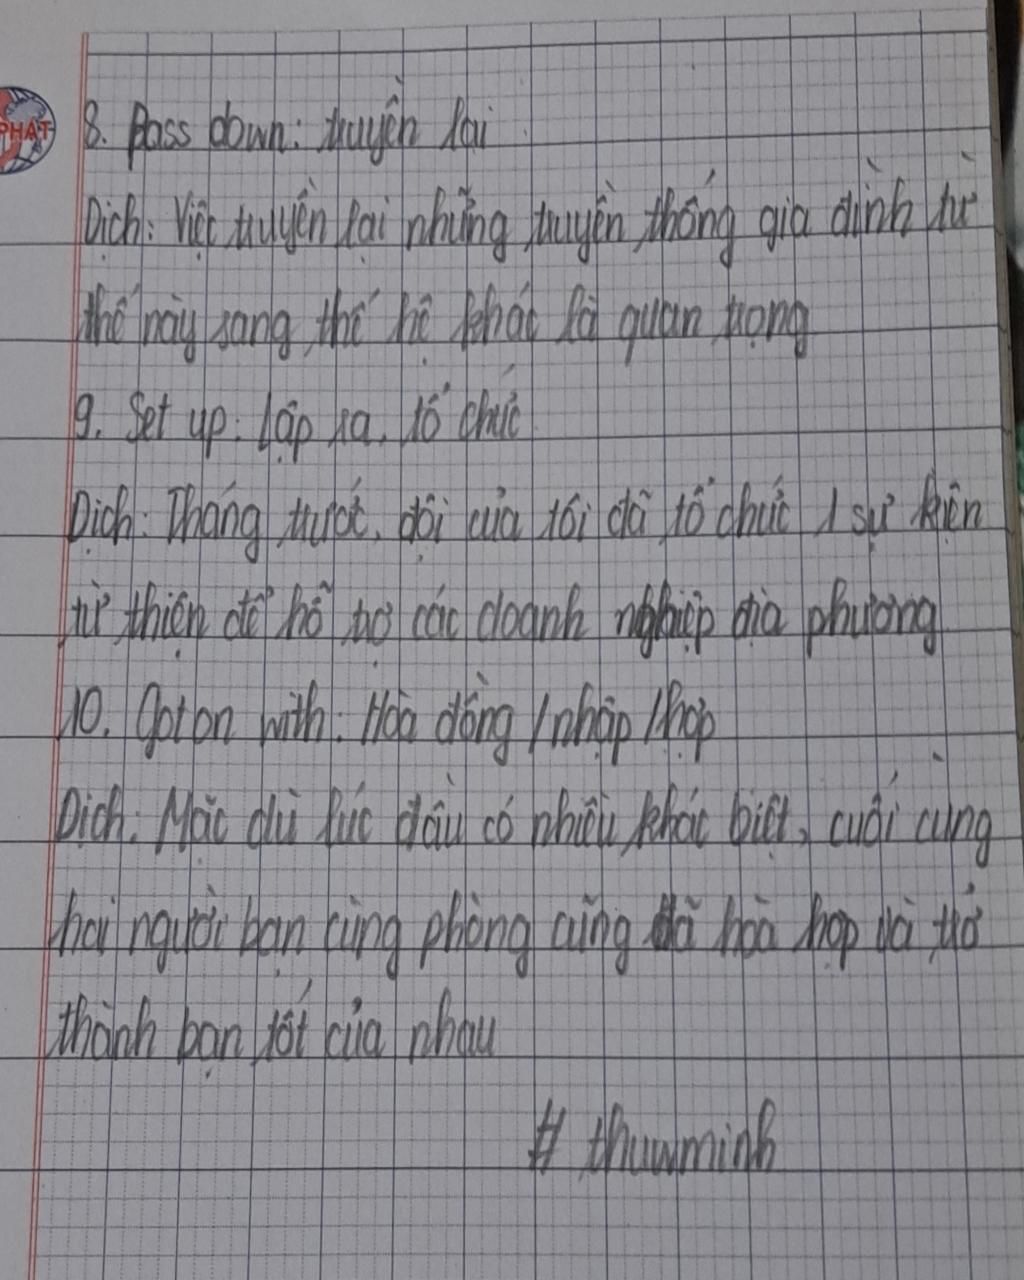 PHÁT
8. Pass down: truyền lại
Dịch: Việc truyền lại những truyền thống gia đình từ
thế này sang thế hệ khác là quan trọng
9. Set up: lập ra, tổ chức
Dịch: Tháng trước, đội của tôi đã tổ chức 1 sự kiện
từ thiện để hỗ trợ các doanh nghiệp địa phương
10. Got on with: Hòa đồng / nhập / hợp
Dịch: Mặc dù lúc đầu có nhiều khác biệt, cuối cùng
hai người bạn cùng phòng cũng đã hòa hợp và trở
thành bạn tốt của nhau
# thuwminh